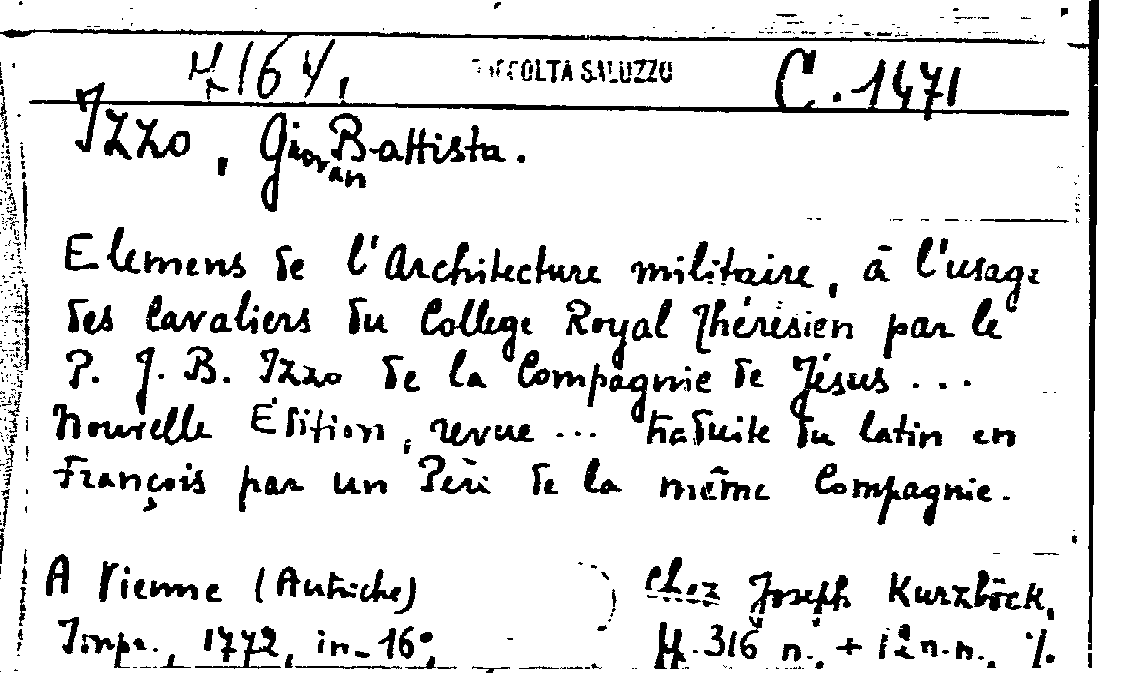 164, RACCOLTA SALUZZO C. 1471
Izzo, Giovan Battista.
Elemens de l'Architecture militaire, à l'usage
des Cavaliers du College Royal Thérésien par le
P. J. B. Izzo de la Compagnie de Jésus ...
Nouvelle Edition, revue ... traduite du latin en
François par un Père de la même Compagnie.
A Vienne (Autriche) Chez Joseph Kurzböck,
Impr., 1772, in-16°, 316 n. + 12 n.n.